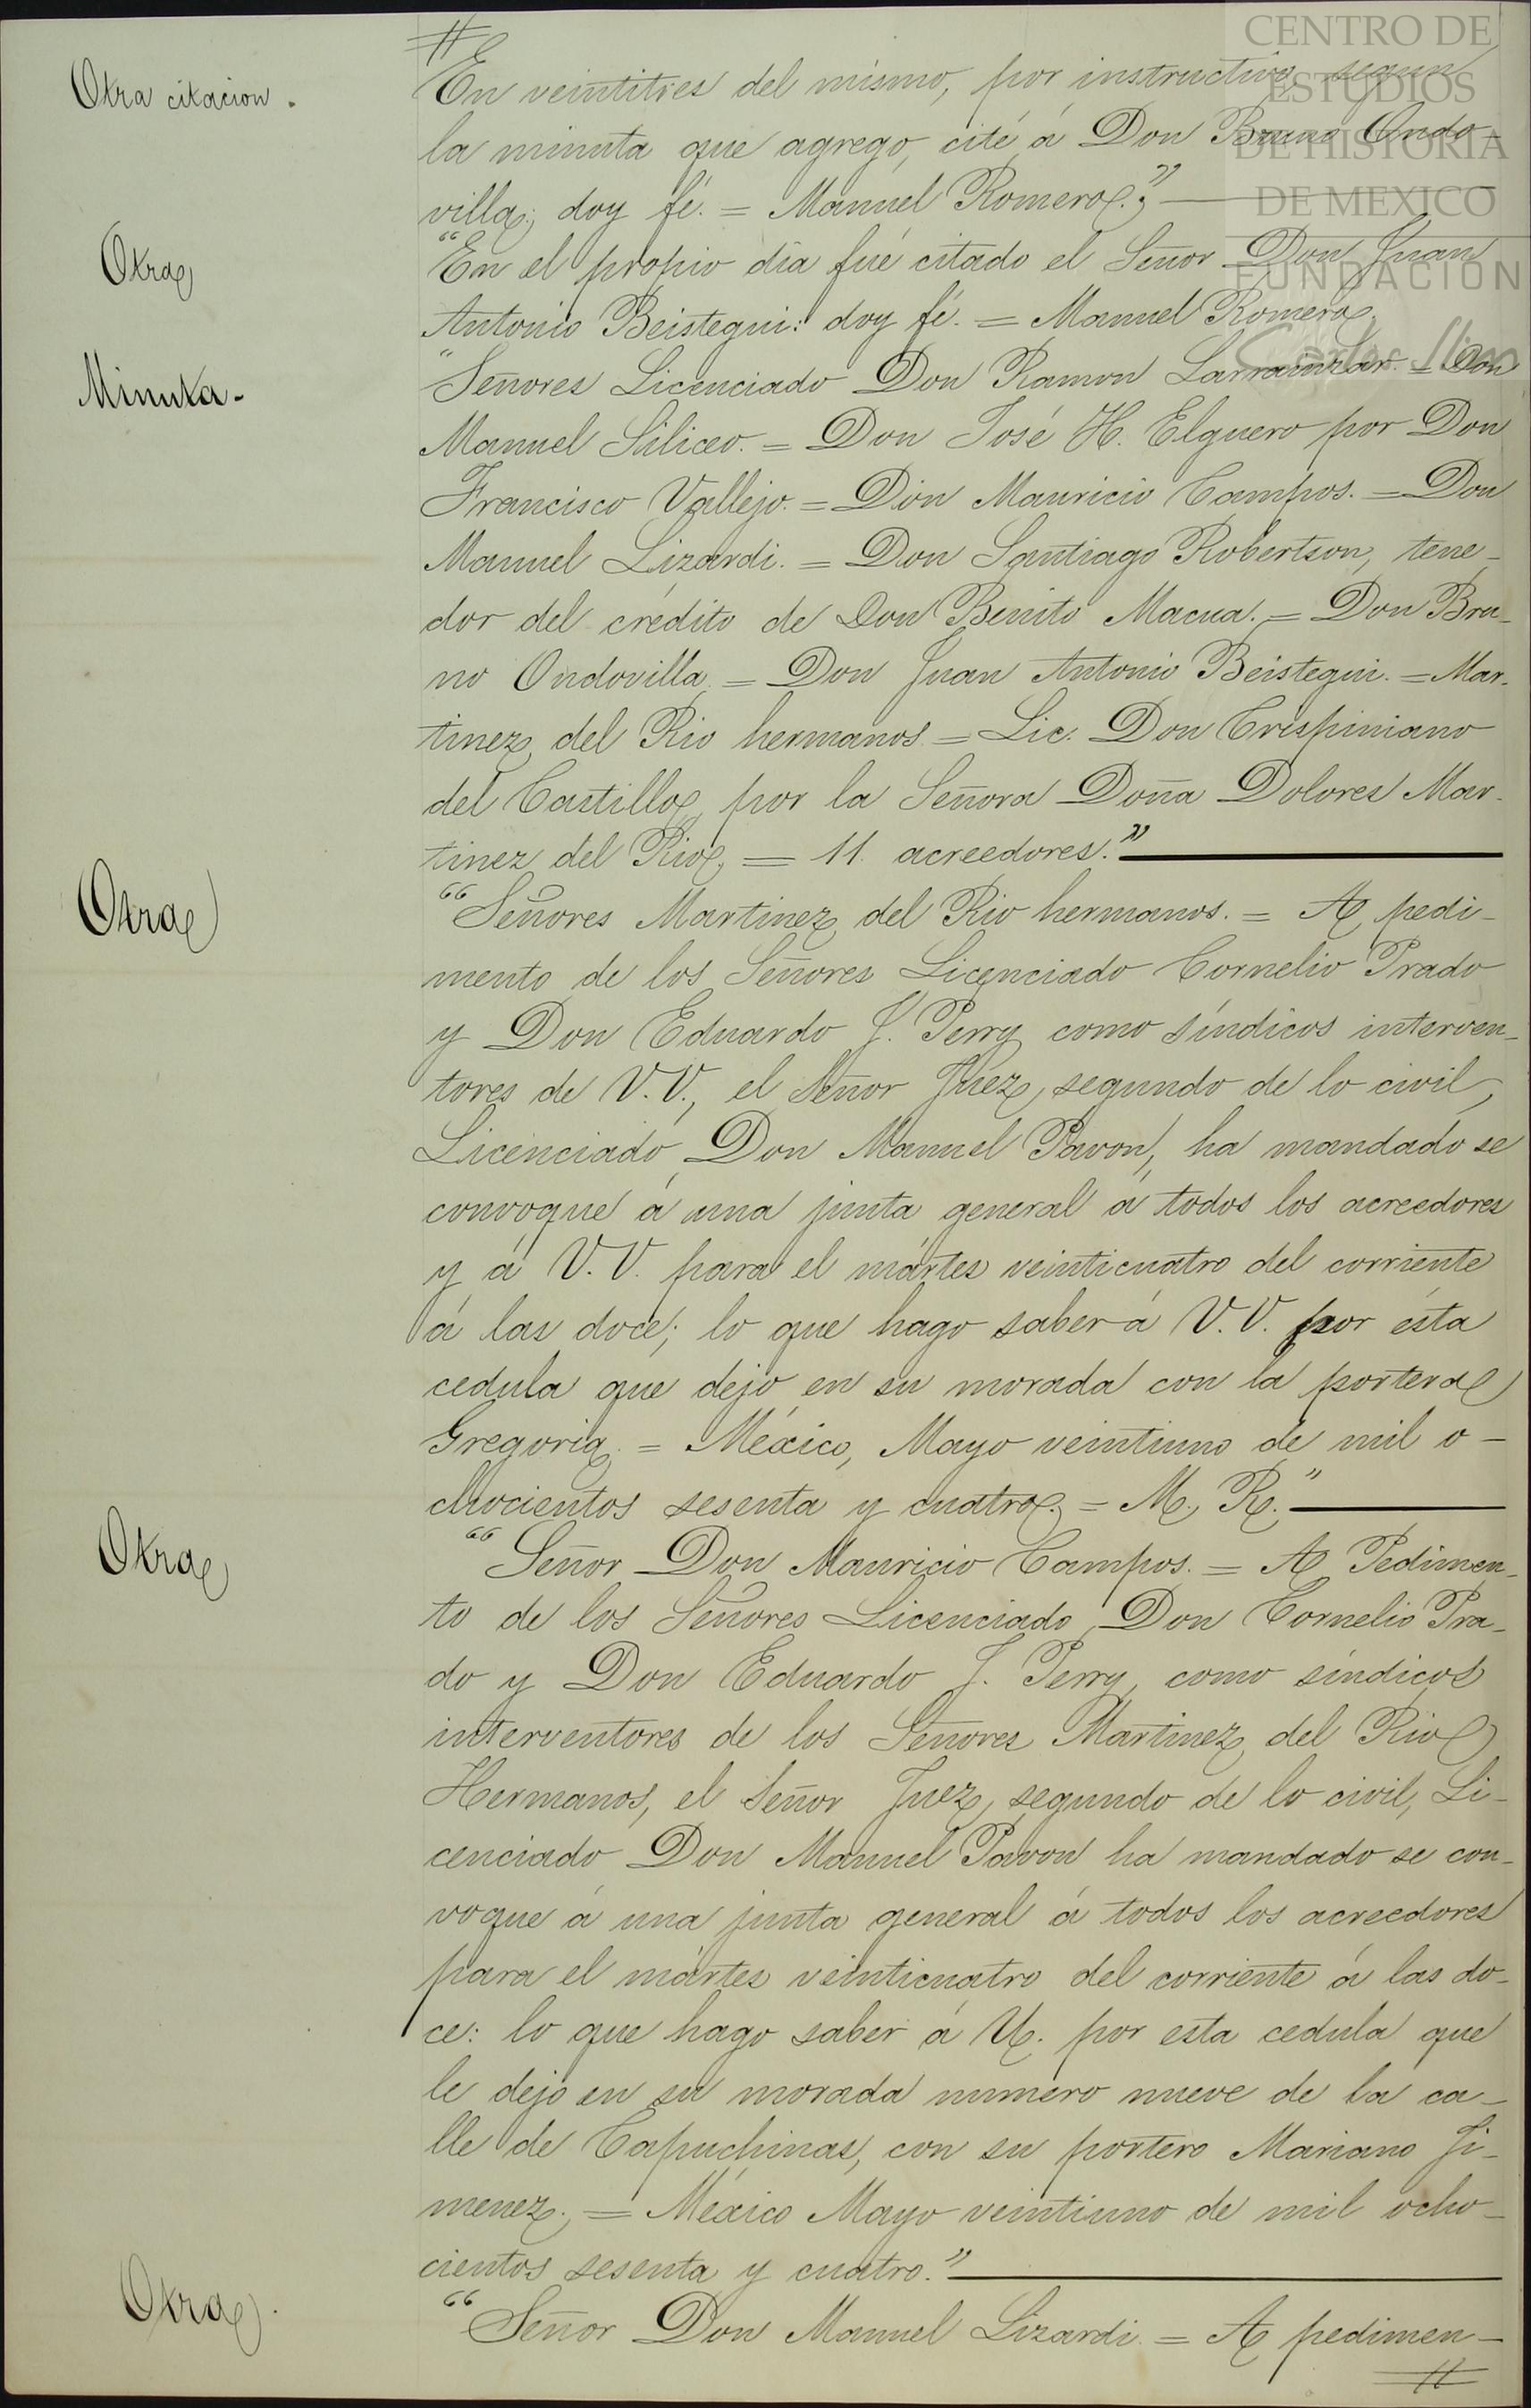 CENTRO DE
ESTUDIOS
DE HISTORIA
DE MEXICO
FUNDACIÓN
Carlos Slim
Otra citacion.
En veintitres del mismo, por instructivo, segun
la minuta que agrego, cité á Don Bruno Ondo-
villa; doy fé. = Manuel Romero."
Otra
"En el propio dia fué citado el Señor Don Juan
Antonio Beistegui: doy fé. = Manuel Romero.
Minuta.
"Señores Licenciado Don Ramon Larrainzar. = Don
Manuel Siliceo. = Don José H. Elguero por Don
Francisco Vallejo. = Don Mauricio Campos. = Don
Manuel Lizardi. = Don Santiago Robertson, tene-
dor del crédito de Don Benito Macua. = Don Bru-
no Ondovilla. = Don Juan Antonio Beistegui. = Mar-
tinez del Rio hermanos = Lic. Don Crispiniano
del Castillo, por la Señora Doña Dolores Mar-
tinez del Rio, = 11. acreedores."
Otra
"Señores Martinez del Rio hermanos. = A pedi-
mento de los Señores Licenciado Cornelio Prado
y Don Eduardo J. Perry como síndicos interven-
tores de V.V., el Señor Juez segundo de lo civil,
Licenciado Don Manuel Pavon, ha mandado se
convoque á una junta general á todos los acreedores
y á V.V. para el mártes veinticuatro del corriente
á las doce; lo que hago saber á V.V. por esta
cedula que dejo en su morada con la portera
Gregoria. = México, Mayo veintiuno de mil o-
chocientos sesenta y cuatro. = M. R."
Otra
"Señor Don Mauricio Campos. = A Pedimen-
to de los Señores Licenciado Don Cornelio Pra-
do y Don Eduardo J. Perry, como síndicos
interventores de los Señores Martinez del Rio
Hermanos, el Señor Juez, segundo de lo civil, Li-
cenciado Don Manuel Pavon ha mandado se con-
voque á una junta general á todos los acreedores
para el mártes veinticuatro del corriente á las do-
ce: lo que hago saber á U. por esta cedula que
le dejo en su morada numero nueve de la ca-
lle de Capuchinas, con su portero Mariano Ji-
menez. = México Mayo veintiuno de mil ocho-
cientos sesenta y cuatro."
Otra.
"Señor Don Manuel Lizardi. = A pedimen-